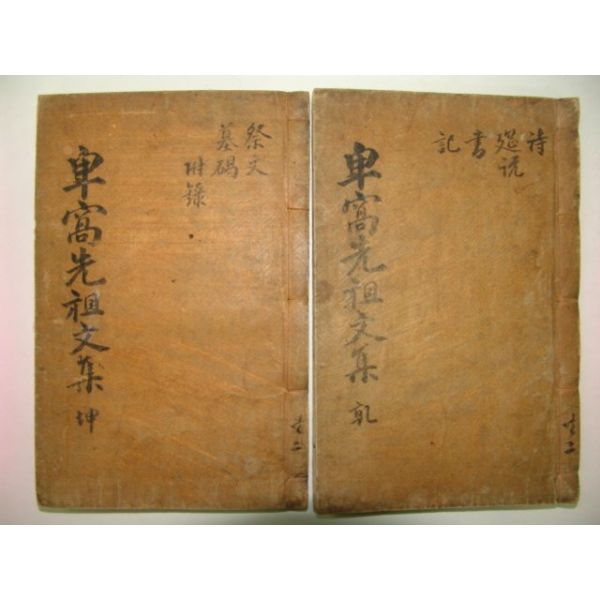 共二
詩
說
書
記
卑窩先祖文集 乾
共二
祭文
墓碣
附錄
卑窩先祖文集 坤